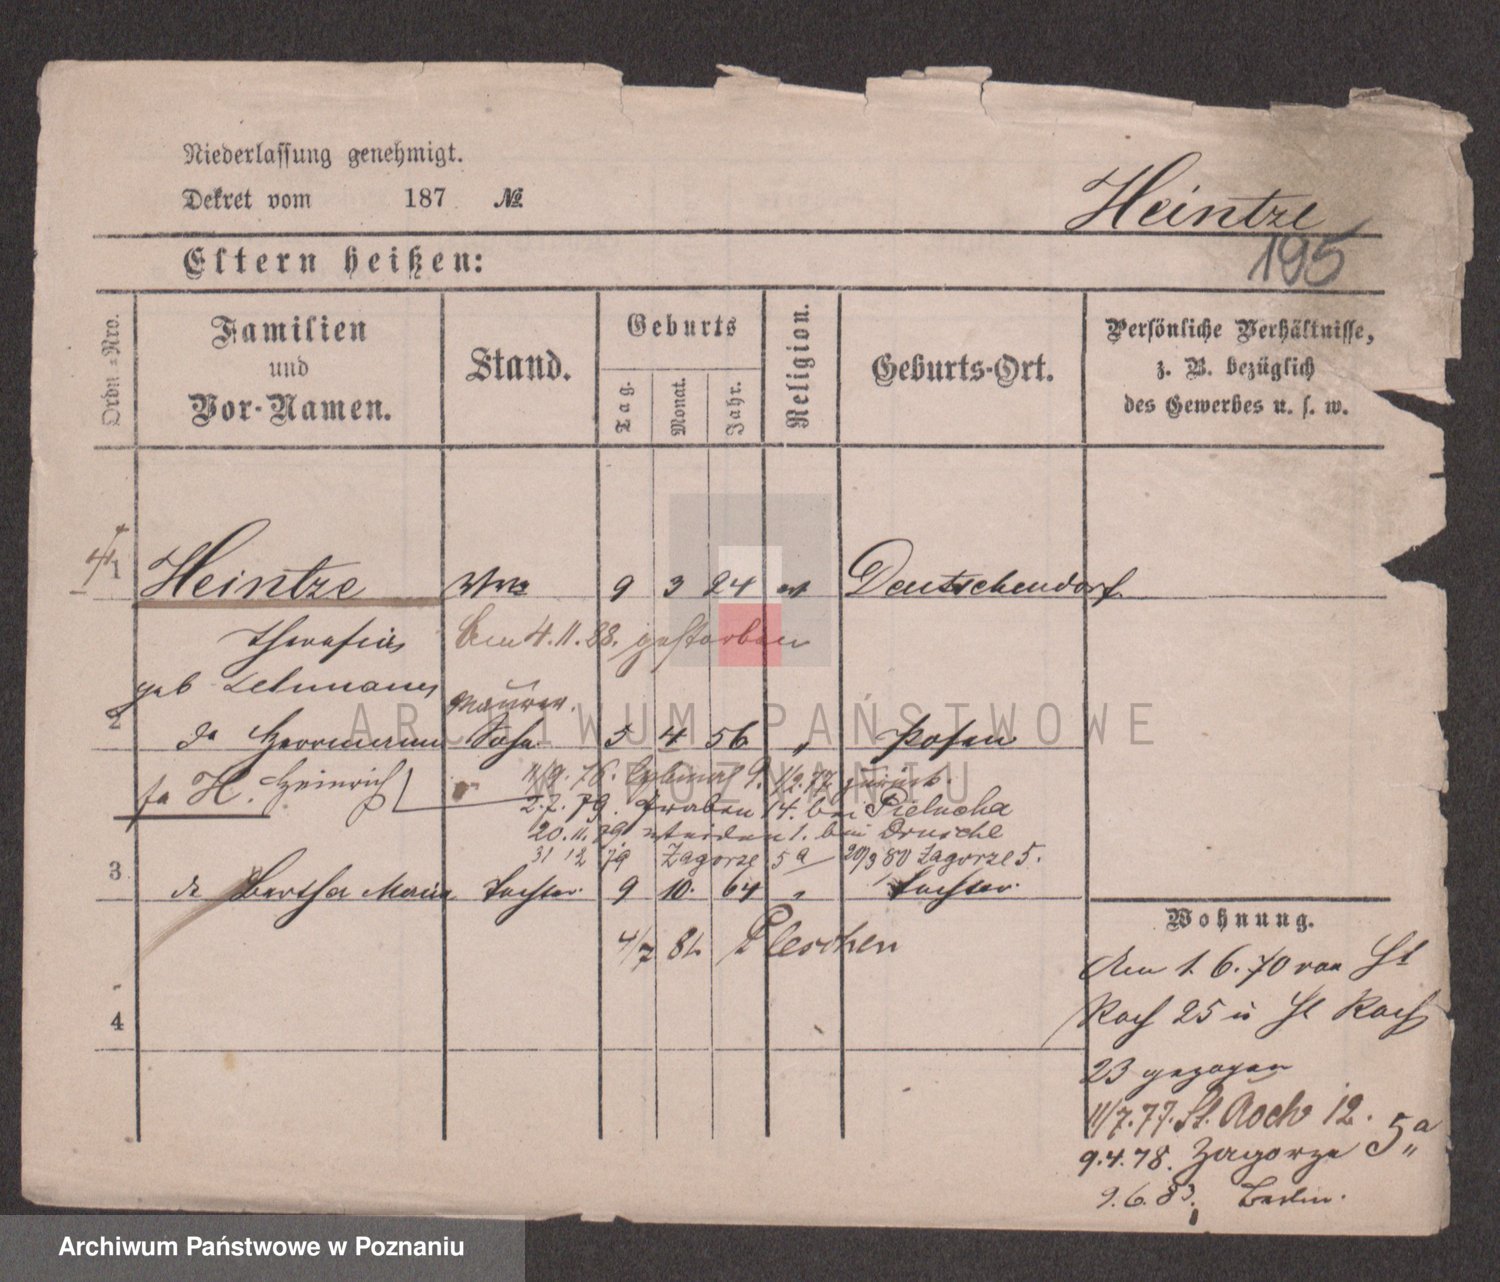 Niederlassung genehmigt.
Dekret vom 187 №
Heintze
195
Eltern heißen:
Ordn.-Nro.
Familien
und
Vor-Namen.
Stand.
Geburts
Tag.
Monat.
Jahr.
Religion.
Geburts-Ort.
Persönliche Verhältnisse,
z. B. bezüglich
des Gewerbes u. s. w.
1 Heintze Wwe 9 3 24 Deutschendorf
4.11.88. gestorben
geb Lehmann
Maurer.
2 Herrmann Sohn 5 4 56 " Posen
H. Heinrich
11/9. 76. 9. 1/2.77 zurück.
2.7.79. Graben 14. bei Pielucha
20.11.79 1. bei Drusche
31 12 79 Zagorze 5a 20/3 80 Zagorze 5.
3 Bertha Maria Tochter 9 10. 64 " Tochter.
4/7 82. Pleschen
4
Wohnung.
Am 1. 6. 70 von St
Roch 25 n St Roch
23 gezogen
11/7.77. St. Roch 12.
9.4.78. Zagorze 5a
9.6.83. Berlin.
ARCHIWUM PAŃSTWOWE
W POZNANIU
Archiwum Państwowe w Poznaniu